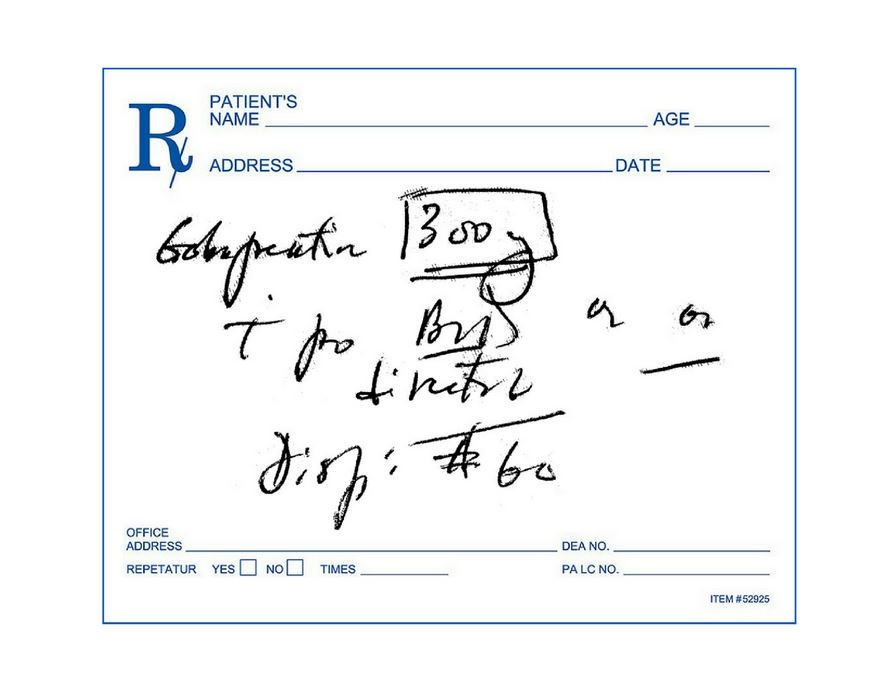 Rx
PATIENT'S
NAME AGE
ADDRESS DATE
Gabapentin 300
T po BID or as
directed
Disp: #60
OFFICE
ADDRESS DEA NO.
REPETATUR YES NO TIMES PA LC NO.
ITEM #52925